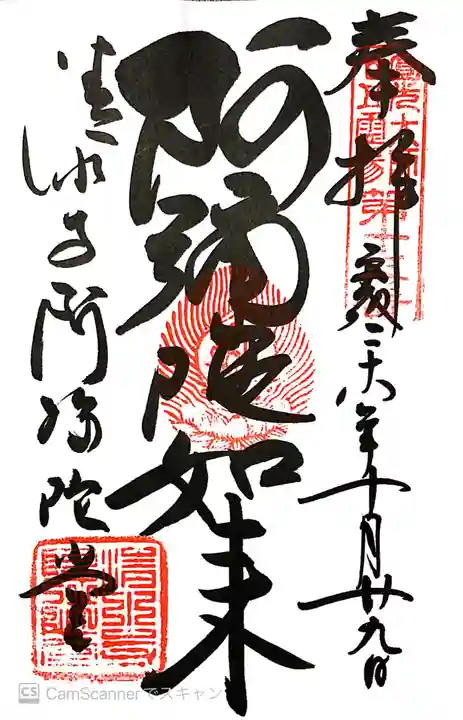 奉拝
平成二十六年十月廿九日
阿弥陀如来
清水寺阿弥陀堂
CS CamScannerでスキャン